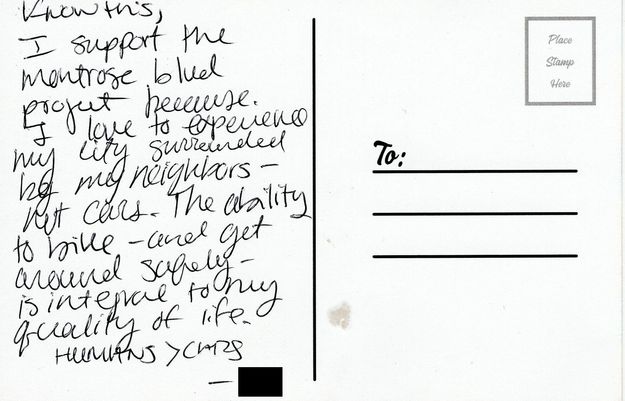 Know this,
I support the
montrose blvd
project because.
I love to experience
my city surrounded
by my neighbors -
not cars. The ability
to bike - and get
around safely -
is integral to my
quality of life.
HUMANS > CARS
-
Place
Stamp
Here
To: